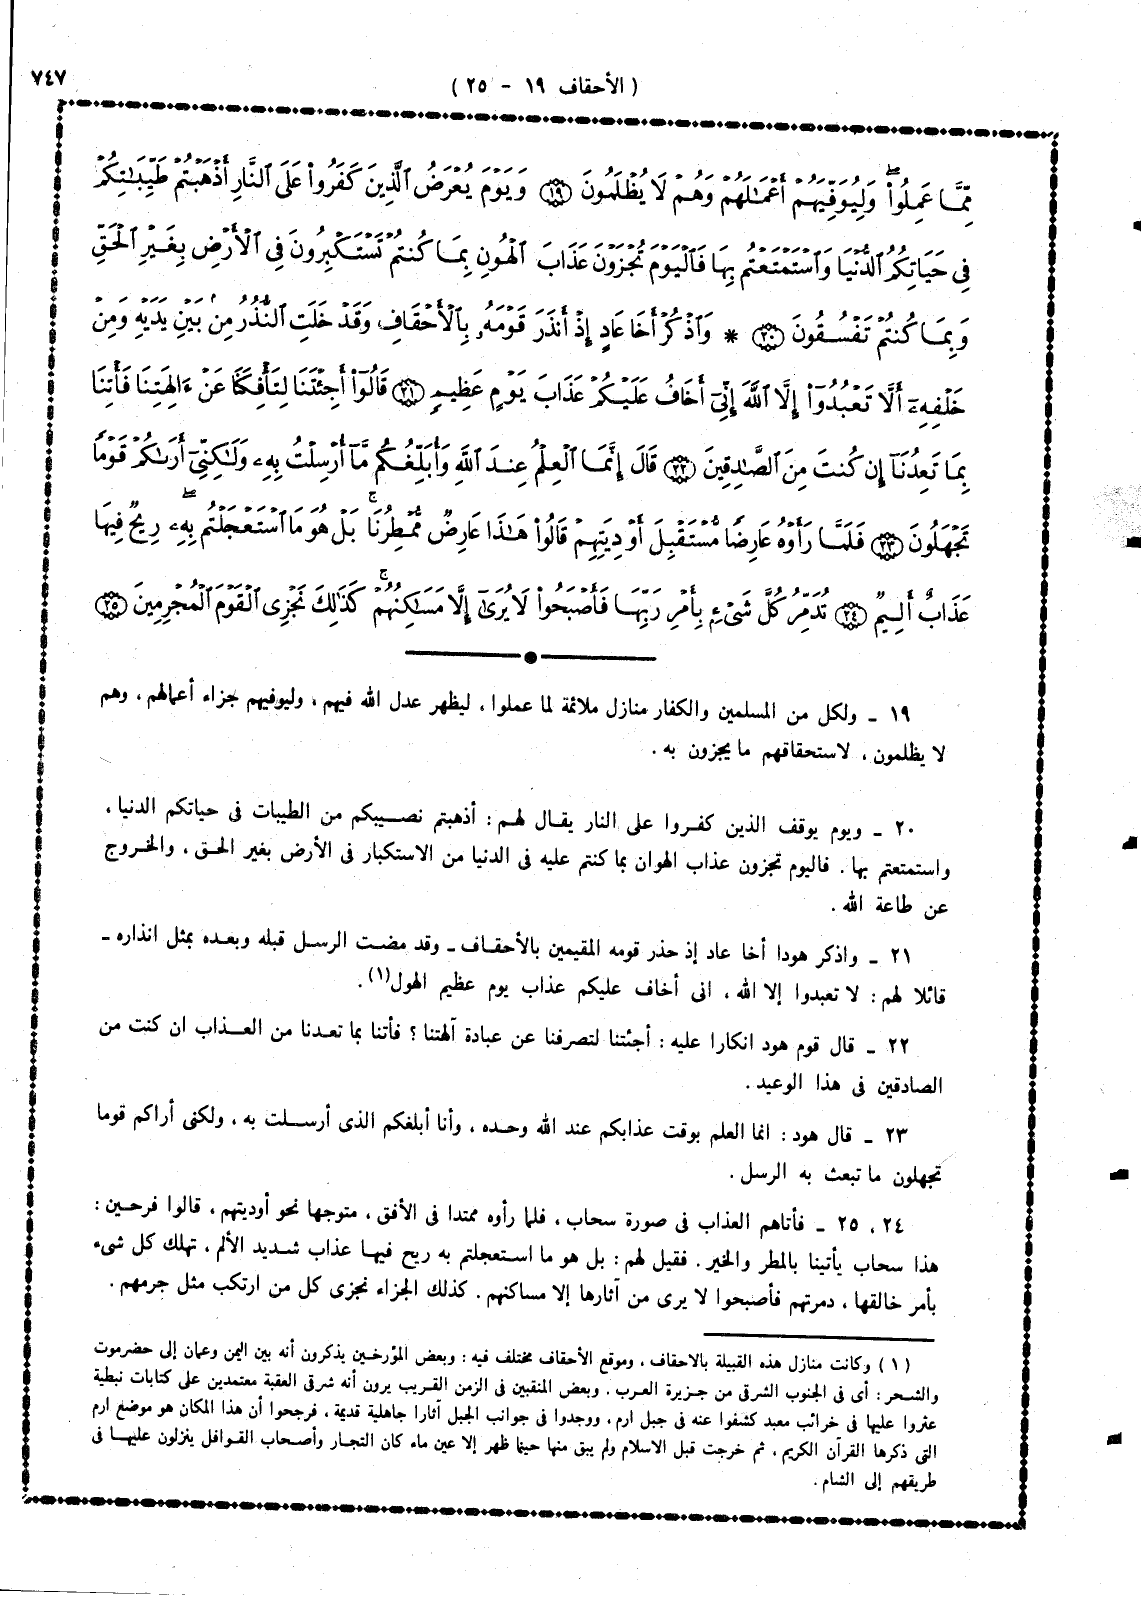 ٧٤٧
( الأحقاف ١٩ - ٢٥ )
مِّمَّا عَمِلُوا۟ ۖ وَلِيُوَفِّيَهُمْ أَعْمَـٰلَهُمْ وَهُمْ لَا يُظْلَمُونَ ﴿١٩﴾ وَيَوْمَ يُعْرَضُ ٱلَّذِينَ كَفَرُوا۟ عَلَى ٱلنَّارِ أَذْهَبْتُمْ طَيِّبَـٰتِكُمْ
فِى حَيَاتِكُمُ ٱلدُّنْيَا وَٱسْتَمْتَعْتُم بِهَا فَٱلْيَوْمَ تُجْزَوْنَ عَذَابَ ٱلْهُونِ بِمَا كُنتُمْ تَسْتَكْبِرُونَ فِى ٱلْأَرْضِ بِغَيْرِ ٱلْحَقِّ
وَبِمَا كُنتُمْ تَفْسُقُونَ ﴿٢٠﴾ * وَٱذْكُرْ أَخَا عَادٍ إِذْ أَنذَرَ قَوْمَهُۥ بِٱلْأَحْقَافِ وَقَدْ خَلَتِ ٱلنُّذُرُ مِنۢ بَيْنِ يَدَيْهِ وَمِنْ
خَلْفِهِۦٓ أَلَّا تَعْبُدُوٓا۟ إِلَّا ٱللَّهَ إِنِّىٓ أَخَافُ عَلَيْكُمْ عَذَابَ يَوْمٍ عَظِيمٍ ﴿٢١﴾ قَالُوٓا۟ أَجِئْتَنَا لِتَأْفِكَنَا عَنْ ءَالِهَتِنَا فَأْتِنَا
بِمَا تَعِدُنَآ إِن كُنتَ مِنَ ٱلصَّـٰدِقِينَ ﴿٢٢﴾ قَالَ إِنَّمَا ٱلْعِلْمُ عِندَ ٱللَّهِ وَأُبَلِّغُكُم مَّآ أُرْسِلْتُ بِهِۦ وَلَـٰكِنِّىٓ أَرَىٰكُمْ قَوْمًا
تَجْهَلُونَ ﴿٢٣﴾ فَلَمَّا رَأَوْهُ عَارِضًا مُّسْتَقْبِلَ أَوْدِيَتِهِمْ قَالُوا۟ هَـٰذَا عَارِضٌ مُّمْطِرُنَا ۚ بَلْ هُوَ مَا ٱسْتَعْجَلْتُم بِهِۦ ۖ رِيحٌ فِيهَا
عَذَابٌ أَلِيمٌ ﴿٢٤﴾ تُدَمِّرُ كُلَّ شَىْءٍۭ بِأَمْرِ رَبِّهَا فَأَصْبَحُوا۟ لَا يُرَىٰٓ إِلَّا مَسَـٰكِنُهُمْ ۚ كَذَٰلِكَ نَجْزِى ٱلْقَوْمَ ٱلْمُجْرِمِينَ ﴿٢٥﴾
١٩ ـ ولكل من المسلمين والكفار منازل ملائمة لما عملوا ، ليظهر عدل الله فيهم ، وليوفيهم جزاء أعمالهم ، وهم
لا يظلمون ، لاستحقاقهم ما يجزون به .
٢٠ ـ ويوم يوقف الذين كفروا على النار يقال لهم : أذهبتم نصيبكم من الطيبات فى حياتكم الدنيا ،
واستمتعتم بها . فاليوم تجزون عذاب الهوان بما كنتم عليه فى الدنيا من الاستكبار فى الأرض بغير الحق ، والخروج
عن طاعة الله .
٢١ ـ واذكر هودا أخا عاد إذ حذر قومه المقيمين بالأحقاف ـ وقد مضت الرسل قبله وبعده بمثل انذاره ـ
قائلا لهم : لا تعبدوا إلا الله ، انى أخاف عليكم عذاب يوم عظيم الهول(١) .
٢٢ ـ قال قوم هود انكارا عليه : أجئتنا لتصرفنا عن عبادة آلهتنا ؟ فأتنا بما تعدنا من العذاب ان كنت من
الصادقين فى هذا الوعيد .
٢٣ ـ قال هود : انما العلم بوقت عذابكم عند الله وحده ، وأنا أبلغكم الذى أرسلت به ، ولكنى أراكم قوما
تجهلون ما تبعث به الرسل .
٢٤ ، ٢٥ ـ فأتاهم العذاب فى صورة سحاب ، فلما رأوه ممتدا فى الأفق ، متوجها نحو أوديتهم ، قالوا فرحين :
هذا سحاب يأتينا بالمطر والخير . فقيل لهم : بل هو ما استعجلتم به ريح فيها عذاب شديد الألم ، تهلك كل شىء
بأمر خالقها ، دمرتهم فأصبحوا لا يرى من آثارها إلا مساكنهم . كذلك الجزاء نجزى كل من ارتكب مثل جرمهم .
( ١ ) وكانت منازل هذه القبيلة بالاحقاف ، وموقع الأحقاف مختلف فيه : وبعض المؤرخين يذكرون أنه بين اليمن وعمان إلى حضرموت
والشحر : أى فى الجنوب الشرقى من جزيرة العرب . وبعض المنقبين فى الزمن القريب يرون أنه شرقى العقبة معتمدين على كتابات نبطية
عثروا عليها فى خرائب معبد كشفوا عنه فى جبل ارم ، ووجدوا فى جوانب الجبل آثارا جاهلية قديمة ، فرجحوا أن هذا المكان هو موضع ارم
التى ذكرها القرآن الكريم ، ثم خرجت قبل الاسلام ولم يبق منها حينما ظهر إلا عين ماء كان التجار وأصحاب القوافل ينزلون عليها فى
طريقهم إلى الشام .